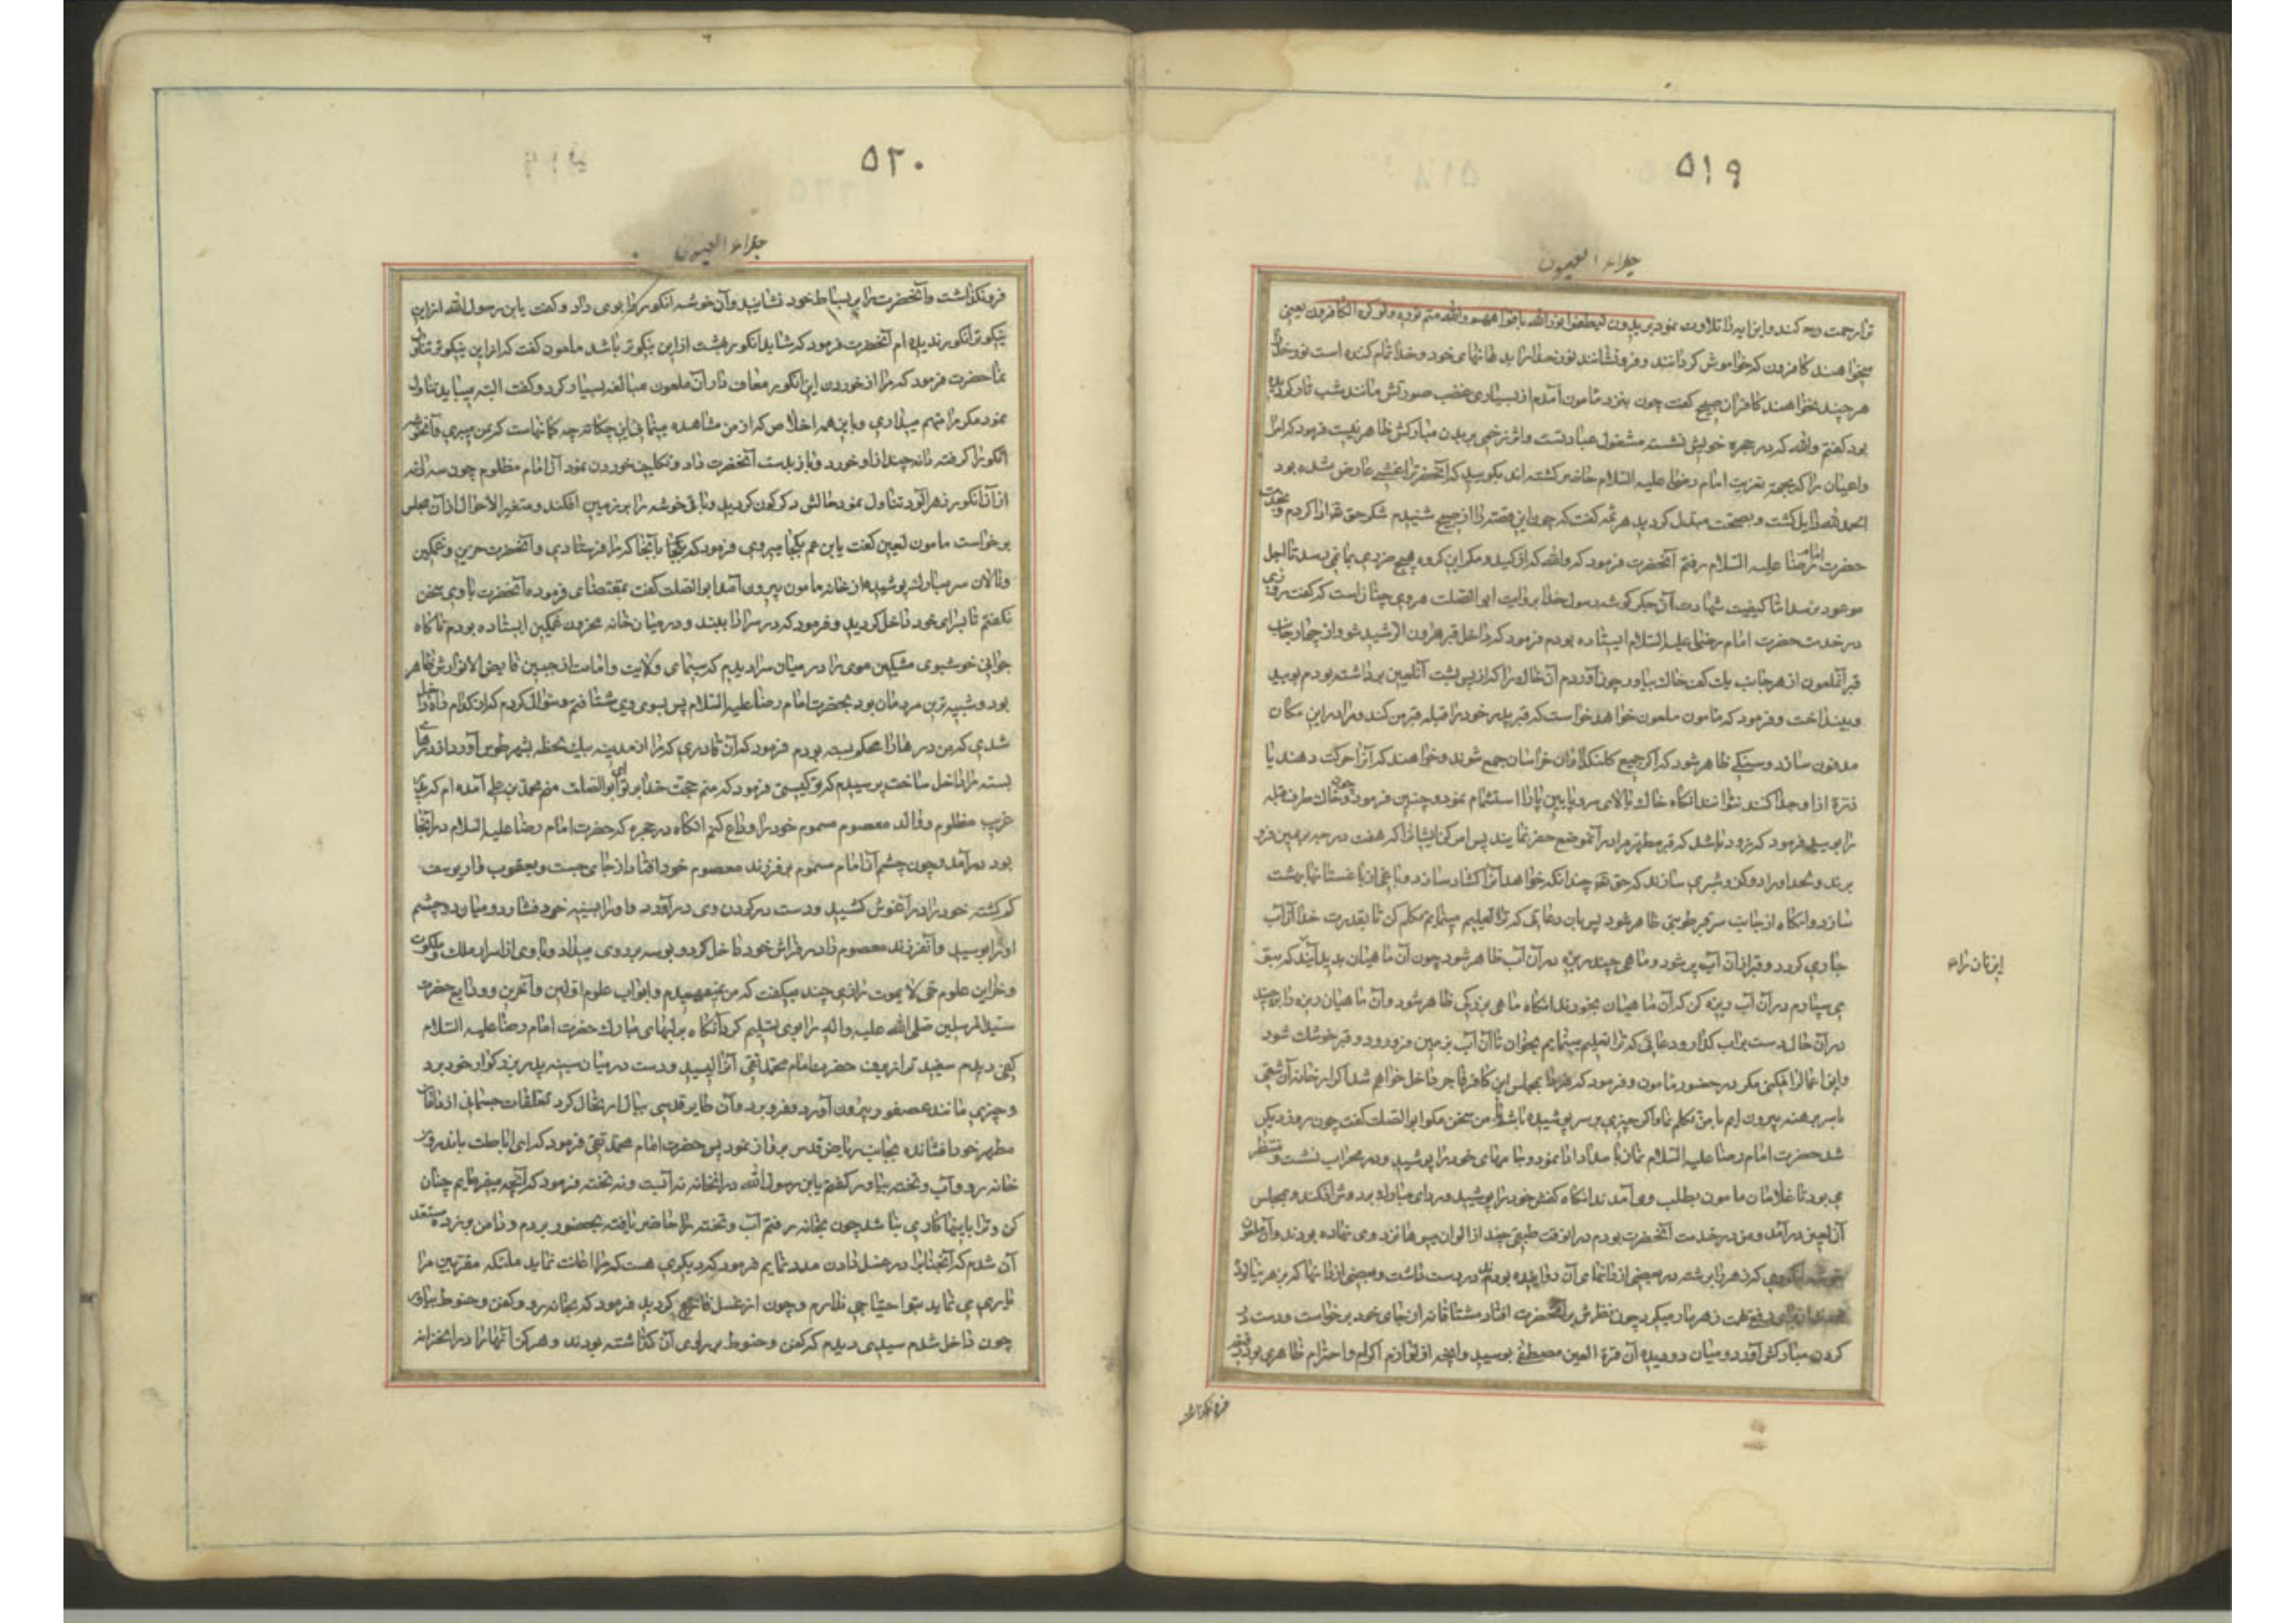 ۵۱۹
جلاء العیون
ترا رحمت کند و این ایه را تلاوت نمود یریدون لیطفئوا نور الله بافواههم والله متم نوره ولو کره الکافرون یعنی
میخواهند کافرون که خاموش گردانند و فرو نشانند نور خدا را بدهانهای خود و خدا تمام کننده است نور خدا
هرچند نخواهند کافران صبیح گفت چون بنزد مامون آمدم از بسیاری غضب صورتش مانند شب تار گردیده
بود گفتم والله که در حجره خویش نشسته مشغول عبادتست و اثر زخمی بر بدن مبارکش ظاهر نیست فرمود که امرا
و اعیان را که بجهة تعزیت امام رضا علیه السلام حاضر گشته اند بگویید که آنحضرترا غشی عارض شده بود
الحمد لله زایل گشت و بصحت مبدل گردید هرثمه گفت که چون این قصه را از صبیح شنیدم شکر حق تعالی ادا کردم و بخدمت
حضرت امام رضا علیه السلام رفتم آنحضرت فرمود که والله که از کید و مکر این گروه هیچ ضرری بما نمی رسد تا اجل
موعود برسد اما کیفیت شهادت آن جگر گوشه رسول خدا بروایت ابو الصلت هروی چنان است که گفت روزی
در خدمت حضرت امام رضا علیه السلام ایستاده بودم فرمود که داخل قبه هارون الرشید شو و از چهار جانب
قبر آنملعون از هر جانب یک کف خاک بیاور چون آوردم آن خاک را که از پس پشت آنلعین برداشته بودم بویید
و بینداخت و فرمود که مامون ملعون خواهد خواست که قبر پدر خود را قبله قبر من کند و مرا در این مکان
مدفون سازد و سنگی ظاهر شود که اگر جمیع کلنگداران خراسان جمع شوند و خواهند که آنرا حرکت دهند یا
ذرۀ از او جدا کنند نتوانند انگاه خاک بالای سر و پایین پا را استشمام نمود و چنین فرمود چون خاک طرف قبله
را بویید فرمود که زود باشد که قبر مطهر مرا در آنموضع حفر نمایند پس امر کن ایشانرا که هفت درجه بزمین فرو
برند و لحد او را دو گز و شبری سازند که حق تعالی چندانکه خواهد آنرا گشاد سازد و باغی از باغستانهای بهشت
سازد و انگاه از جانب سر قبر رطوبتی ظاهر شود پس بان دعائی که ترا تعلیم مینمایم تکلم کن تا بقدرت خدا آن آب
جاری گردد و قبر از آن آب پر شود و ماهی چند ریزه در آن آب ظاهر شود چون آن ماهیان بدید آیند که بتو
می سپارم در آن آب ریزه کن که آن ماهیان بخورند انگاه ماهی بزرگی ظاهر شود و آن ماهیان ریزه را برچیند
در آن حال دست بر آب گذار و دعائی که ترا تعلیم مینمایم بخوان تا آن آب بزمین فرو رود و قبر خوشک شود
و این اعمال را نکنی مگر در حضور مامون و فرمود که فردا بمجلس این کافر فاجر داخل خواهم شد اگر از خانه آن شقی
با سر برهنه بیرون ایم با من تکلم نما و اگر چیزی بر سر پوشیده باشم با من سخن مگو ابو الصلت گفت چون روز دیگر
شد حضرت امام رضا علیه السلام نماز بامداد ادا نمود و جامهای خود را پوشید و در محراب نشست و منتظر
می بود تا غلامان مامون بطلب وی آمدند انگاه کفش خود را پوشید و ردای مبارک بر دوش افکند و بمجلس
آن لعین در آمد و من در خدمت آنحضرت بودم در انوقت طبقی چند از الوان میوها نزد وی نهاده بودند و آن ملعون
خوشه انگوری که زهر را برشته در بعضی از دانهای آن دوانیده بودند در دست داشت و بعضی از دانها که بزهر نیالوده
زهر مار میکرد چون نظرش بر آنحضرت افتاد مشتاقانه از جای خود برخواست و دست در
گردن مبارکش آورد و میان دو دیده آن قرة العین مصطفی بوسید و انچه از لوازم اکرام و احترام ظاهری بود دقیقه
فرونگذاشت
۵۲۰
جلاء العیون
فرو نگذاشت و آنحضرت را بر بساط خود نشانید و آن خوشه انگور را بوی داد و گفت یابن رسول الله از این
نیکوتر انگور ندیده ام آنحضرت فرمود که شاید انگور بهشت از این نیکوتر باشد مامون گفت که از این نیکوتر تناول
نما حضرت فرمود که مرا از خوردن این انگور معاف دار آن ملعون مبالغه بسیار کرد و گفت البته میباید تناول
نمود مگر مرا متهم میداری و با این همه اخلاص که از من مشاهده مینمائی این چه گمانهاست که بمن میبری و آنخوشه
انگور را گرفته دانه چند از او خورد و باز بدست آنحضرت داد و تکلیف خوردن نمود آن امام مظلوم چون سه دانه
از آن انگور زهر آلود تناول نمود حالش دگرگون گردید و باقی خوشه را بر زمین افکند و متغیر الاحوال از آن مجلس
برخواست مامون لعین گفت یابن عم بکجا میروی فرمود که بکجا بآنجا که مرا فرستادی و آنحضرت حزین و غمگین
و نالان سر مبارک پوشیده از خانه مامون بیرون آمد ابو الصلت گفت بمقتضای فرموده آنحضرت با وی سخن
نگفتم تا بسرای خود داخل گردید و فرمود که در سرا را ببند و در میان خانه محزون غمگین ایستاده بودم ناگاه
جوانی خوشبوی مشکین موی را در میان سرا دیدم که سیمای ولایت و امامت از جبین فایض الانوارش ظاهر
بود و شبیه ترین مردمان بود بحضرت امام رضا علیه السلام پس بسوی وی شتافتم و سؤال کردم که از کدام راه داخل
شدی که من در ها را محکم بسته بودم فرمود که آن قادری که مرا از مدینه بیک لحظه بشهر طوس آورد از درهای
بسته مرا داخل ساخت پرسیدم که تو کیستی فرمود که منم حجت خدا بر تو ای ابو الصلت منم محمد بن علی آمده ام که پدر
غریب مظلوم و والد معصوم مسموم خود را وداع کنم انگاه در حجره که حضرت امام رضا علیه السلام در آنجا
بود در آمد و چون چشم آن امام مسموم بر فرزند معصوم خود افتاد از جای جست و یعقوب وار یوسف
گم گشته خود را در آغوش کشید و دست در گردن وی در آورد و او را بسینه خود فشارد و میان دو چشم
او را بوسید و آنفرزند معصوم را در فراش خود داخل کرد و بوسه بر روی میداد و با وی از اسرار ملک و ملکوت
و خزاین علوم حی لا یموت رازی چند میگفت که من نمیفهمیدم و ابواب علوم اولین و آخرین و ودایع حضرت
سید المرسلین صلی الله علیه واله را بوی تسلیم کرد آنگاه بر لبهای مبارک حضرت امام رضا علیه السلام
کفی دیدم سفید تر از برف حضرت امام محمد تقی آنرا لیسید و دست در میان سینه پدر بزرگوار خود برد
و چیزی مانند عصفور بیرون آورد و فرو برد و آن طایر قدسی ببال ارتحال گرد تعلقات جسمانی از دامان
مطهر خود افشانده بجانب ریاض قدس پرواز نمود پس حضرت امام محمد تقی فرمود که ای ابا صلت باندرون
خانه رو و آب و تخته بیاور گفتم یابن رسول الله در انخانه نه آبست و نه تخته فرمود که آنچه میفرمایم چنان
کن و ترا باینها کاری نباشد چون بخانه رفتم آب و تخته را حاضر یافته بحضور بردم و دامن بر زده مستعد
آن شدم که آنجنابرا در غسل دادن مدد نمایم فرمود که دیگری هست که مرا اعانت نماید ملئکه مقربین مرا
یاری می نماید بتو احتیاجی ندارم و چون از غسل فارغ گردید فرمود که بخانه رو و کفن و حنوط بیاور
چون داخل شدم سبدی دیدم که کفن و حنوط بر روی آن گذاشته بودند و هرگز آنها را در انخانه